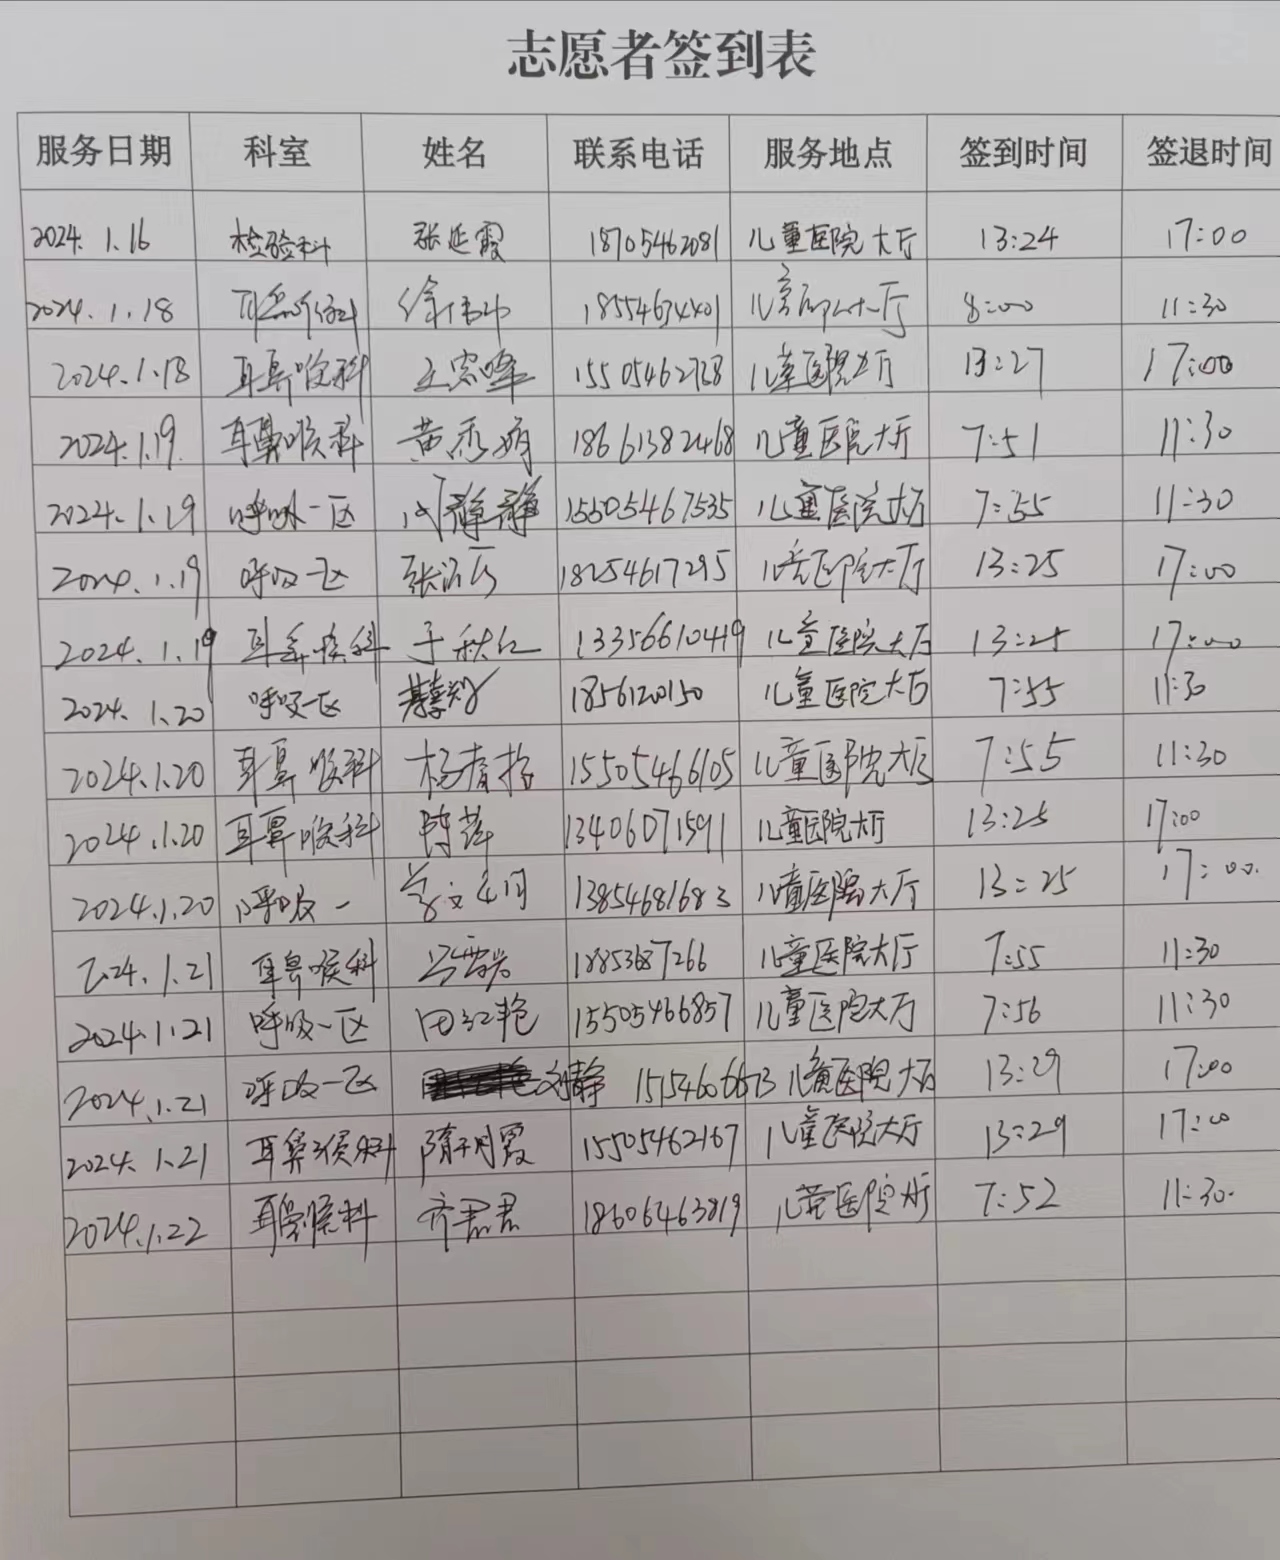 志愿者签到表
服务日期 科室 姓名 联系电话 服务地点 签到时间 签退时间
2024.1.16 检验科 张延霞 18705462081 儿童医院大厅 13:24 17:00
2024.1.18 18554634401 大厅 8:00 11:30
2024.1.18 耳鼻喉科 15505462728 儿童医院大厅 13:27 17:00
2024.1.19. 耳鼻喉科 黄秀娟 18661382468 儿童医院大厅 7:51 11:30
2024.1.19 呼吸一区 闪静静 15505467535 儿童医院大厅 7:55 11:30
2024.1.19 呼吸一区 18254617295 儿童医院大厅 13:25 17:00
2024.1.19 耳鼻喉科 于秋红 13356610419 儿童医院大厅 13:25 17:00
2024.1.20 呼吸一区 1856120150 儿童医院大厅 7:55 11:30
2024.1.20 耳鼻喉科 15505466105 儿童医院大厅 7:55 11:30
2024.1.20 耳鼻喉科 陈萍 13406071591 儿童医院大厅 13:25 17:00
2024.1.20 呼吸一 13854681683 儿童医院大厅 13:25 17:00.
2024.1.21 耳鼻喉科 18853687266 儿童医院大厅 7:55 11:30
2024.1.21 呼吸一区 田红艳 15505466857 儿童医院大厅 7:56 11:30
2024.1.21 呼吸一区 刘静 15154606673 儿童医院大厅 13:29 17:00
2024.1.21 耳鼻喉科 隋月霞 15505462167 儿童医院大厅 13:29 17:00
2024.1.22 耳鼻喉科 齐君君 18606463819 儿童医院大厅 7:52 11:30.